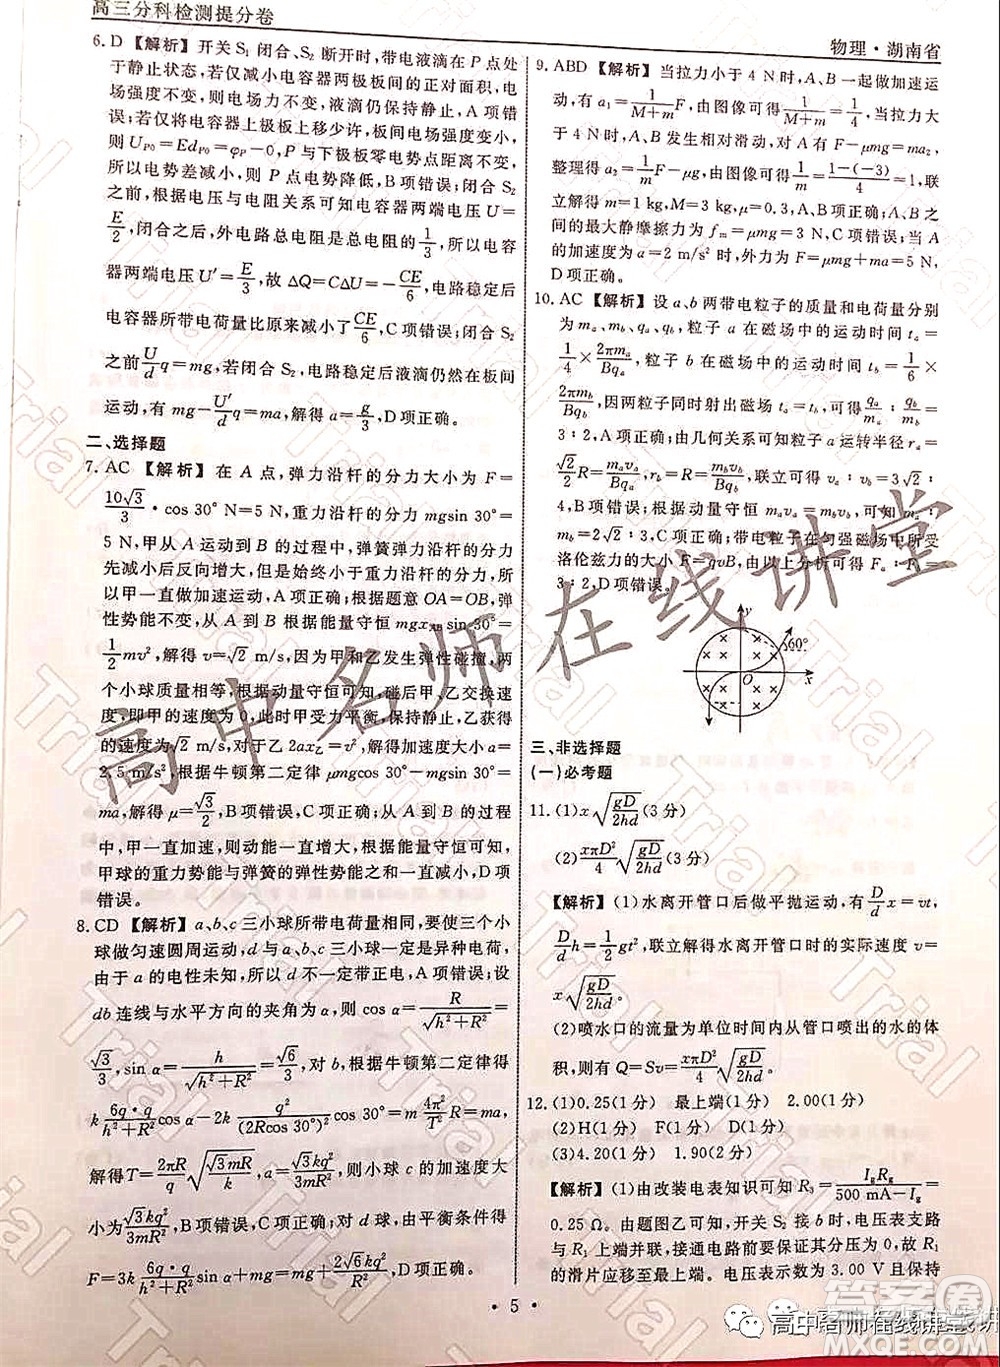 高三分科检测提分卷
物理·湖南省
6. D 【解析】开关 S₁ 闭合、S₂ 断开时,带电液滴在 P 点处
于静止状态,若仅减小电容器两极板间的正对面积,电
场强度不变,则电场力不变,液滴仍保持静止,A 项错
误;若仅将电容器上极板上移少许,板间电场强度变小,
则 U_{P0}=Ed_{P0}=φ_P-0,P 与下极板零电势点距离不变,
所以电势差减小,P 点电势降低,B 项错误;闭合 S₂
前,根据电压与电阻关系可知电容器两端电压为
E/2,闭合之后,外电路总电阻是总电阻的 1/3,所以电容
器两端电压 U′=E/3,故 ΔQ=CΔU=-CE/6,电路稳定后
电容器所带电荷量比原来减小了 CE/6,C 项错误;闭合 S₂
之前 U/d q=mg,闭合 S₂,电路稳定后液滴仍然在板间
运动,有 mg-U′/d q=ma,解得 a=g/3,D 项正确。
二、选择题
7. AC 【解析】在 A 点,弹力沿杆的分力大小为 F=
10√3/3·cos 30° N=5 N,重力沿杆的分力 mgsin 30°=
5 N,甲从 A 运动到 B 的过程中,弹簧弹力沿杆的分力
先减小后反向增大,但是始终小于重力沿杆的分力,所
以甲一直做加速运动,A 项正确;根据题意 OA=OB,弹
性势能不变,从 A 到 B 根据能量守恒 mgx_{AB}sin 30°=
1/2 mv²,解得 v=√2 m/s,因为甲和乙发生弹性碰撞,两
个小球质量相等,根据动量守恒可知,碰后甲、乙交换速
度,甲的速度为 0,此时甲受力平衡,保持静止,乙获得
的速度为 √2 m/s,对于乙 2ax_乙=v²,解得加速度大小 a=
2.5 m/s²,根据牛顿第二定律 μmgcos 30°-mgsin 30°=
ma,解得 μ=√3/2,B 项错误、C 项正确;从 A 到 B 的过程
中,甲一直加速,则动能一直增大,根据能量守恒可知,
甲球的重力势能与弹簧的弹性势能之和一直减小,D 项
错误。
8. CD 【解析】a、b、c 三小球所带电荷量相同,要使三个小
球做匀速圆周运动,d 与 a、b、c 三小球一定是异种电荷,
由于 a 的电性未知,所以 d 不一定带正电,A 项错误;设
db 连线与水平方向的夹角为 α,则 cos α=R/√(h²+R²)=
√3/3,sin α=h/√(h²+R²)=√6/3,对 b,根据牛顿第二定律得
k 6q·q/(h²+R²) cos α-2k q²/(2Rcos 30°)² cos 30°=m 4π²/T² R,
解得 T=2πR/q √(√3mR/k)=√3kq²/(3mR²),则小球 c 的加速度大
小为 √3kq²/(3mR²),B 项错误、C 项正确;对 d,由平衡条件得
F=3k 6q·q/(h²+R²) sin α+mg=2√6kq²/R²+mg,D 项正确。
9. ABD 【解析】当拉力小于 4 N 时,A、B 一起做加速运
动,有 a₁=1/(M+m) F,由图像可得 1/(M+m)=1/4,当拉力大
于 4 N 时,A、B 发生相对滑动,对 A 有 F-μmg=ma₂,
整理得 a₂=1/m F-μg,由图像可得 1/m=(1-(-3))/4=1,联
立解得 m=1 kg,M=3 kg,μ=0.3,A、B 项正确;A、B 间
的最大静摩擦力为 μmg=3 N,C 项错误;当 A
的加速度为 a=2 m/s² 时,外力为 F=μmg+ma=5 N,
D 项正确。
10. AC 【解析】设 a、b 两带电粒子的质量和电荷量分别
为 m_a、m_b、q_a、q_b,粒子 a 在磁场中的运动时间 t_a=
1/4×2πm_a/Bq_a,粒子 b 在磁场中的运动时间 t_b=1/6×
2πm_b/Bq_b,因两粒子同时射出磁场 t_a=t_b,可得 q_a/m_a:q_b/m_b=
3:2,A 项正确;由几何关系可得粒子 a 运动半径 r_a=
√2/2 R=m_a v_a/Bq_a,r_b=R=m_b v_b/Bq_b,联立可得 v_a:v_b=3√2:
4,B 项错误;由动量大小相等有 m_a v_a=m_b v_b,可得 m_a:
m_b=2√2:3,C 项正确;带电粒子在匀强磁场中所受
洛伦兹力的大小 F=qvB,可得 F_a:F_b=
3:2,D 项错误。
y
60°
O
x
三、非选择题
(一)必考题
11. (1)x√(gD/2hd)(3 分)
(2)xπD²/4 √(gD/2hd)(3 分)
【解析】(1)水离开管口后做平抛运动,有 D/d x=vt,
D/d h=1/2 gt²,联立解得水离开管口时的实际速度 v=
x√(gD/2hd)。
(2)喷水口的流量为单位时间内从管口喷出的水的体
积,则有 Q=Sv=xπD²/4 √(gD/2hd)。
12. (1)0.25(1 分) 最上端(1 分) 2.00(1 分)
(2)H(1 分) F(1 分) D(1 分)
(3)4.20(1 分) 1.90(2 分)
【解析】(1)由改装电表知识可知 R₃=I_g R_g/(500 mA-I_g)=
0.25 Ω。由题图乙可知,开关 S₂ 接 b 时,电压表支路
与 R₁ 上端并联,接通电路前要保证其分压为 0,故 R₁
的滑片应移至最上端。电压表示数为 3.00 V 且保持
·5·
高中名师在线讲堂
Trial
答案圈
高中名师在线讲堂